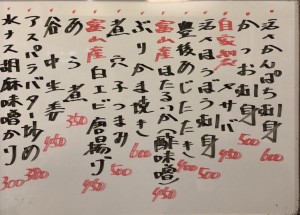 活かんぱち刺身 600
かつお刺身 500
自家製〆サバ 450
活ほうぼう刺身 500
豊後あじたたき 400
富山産ほたるいか(酢味噌) 450
ぶりかま焼き 600
煮穴子つまみ
富山産白エビ唐揚げ 450
あら煮 350
谷中生姜 450
アスパラバター炒め 380
水ナス胡麻味噌かけ 300